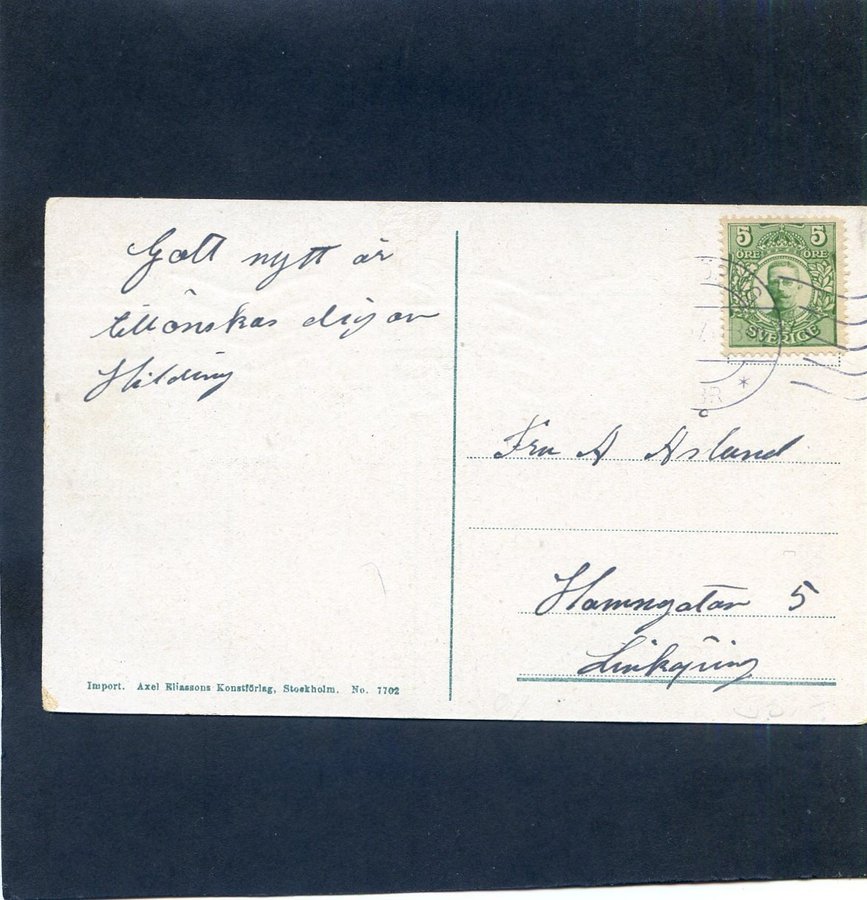 Gott nytt år
tillönskas dig av
Hilding
5 5
ÖRE ÖRE
SVERIGE
Fru A Åsland
Hamngatan 5
Linköping
Import. Axel Eliassons Konstförlag, Stockholm. No. 7702